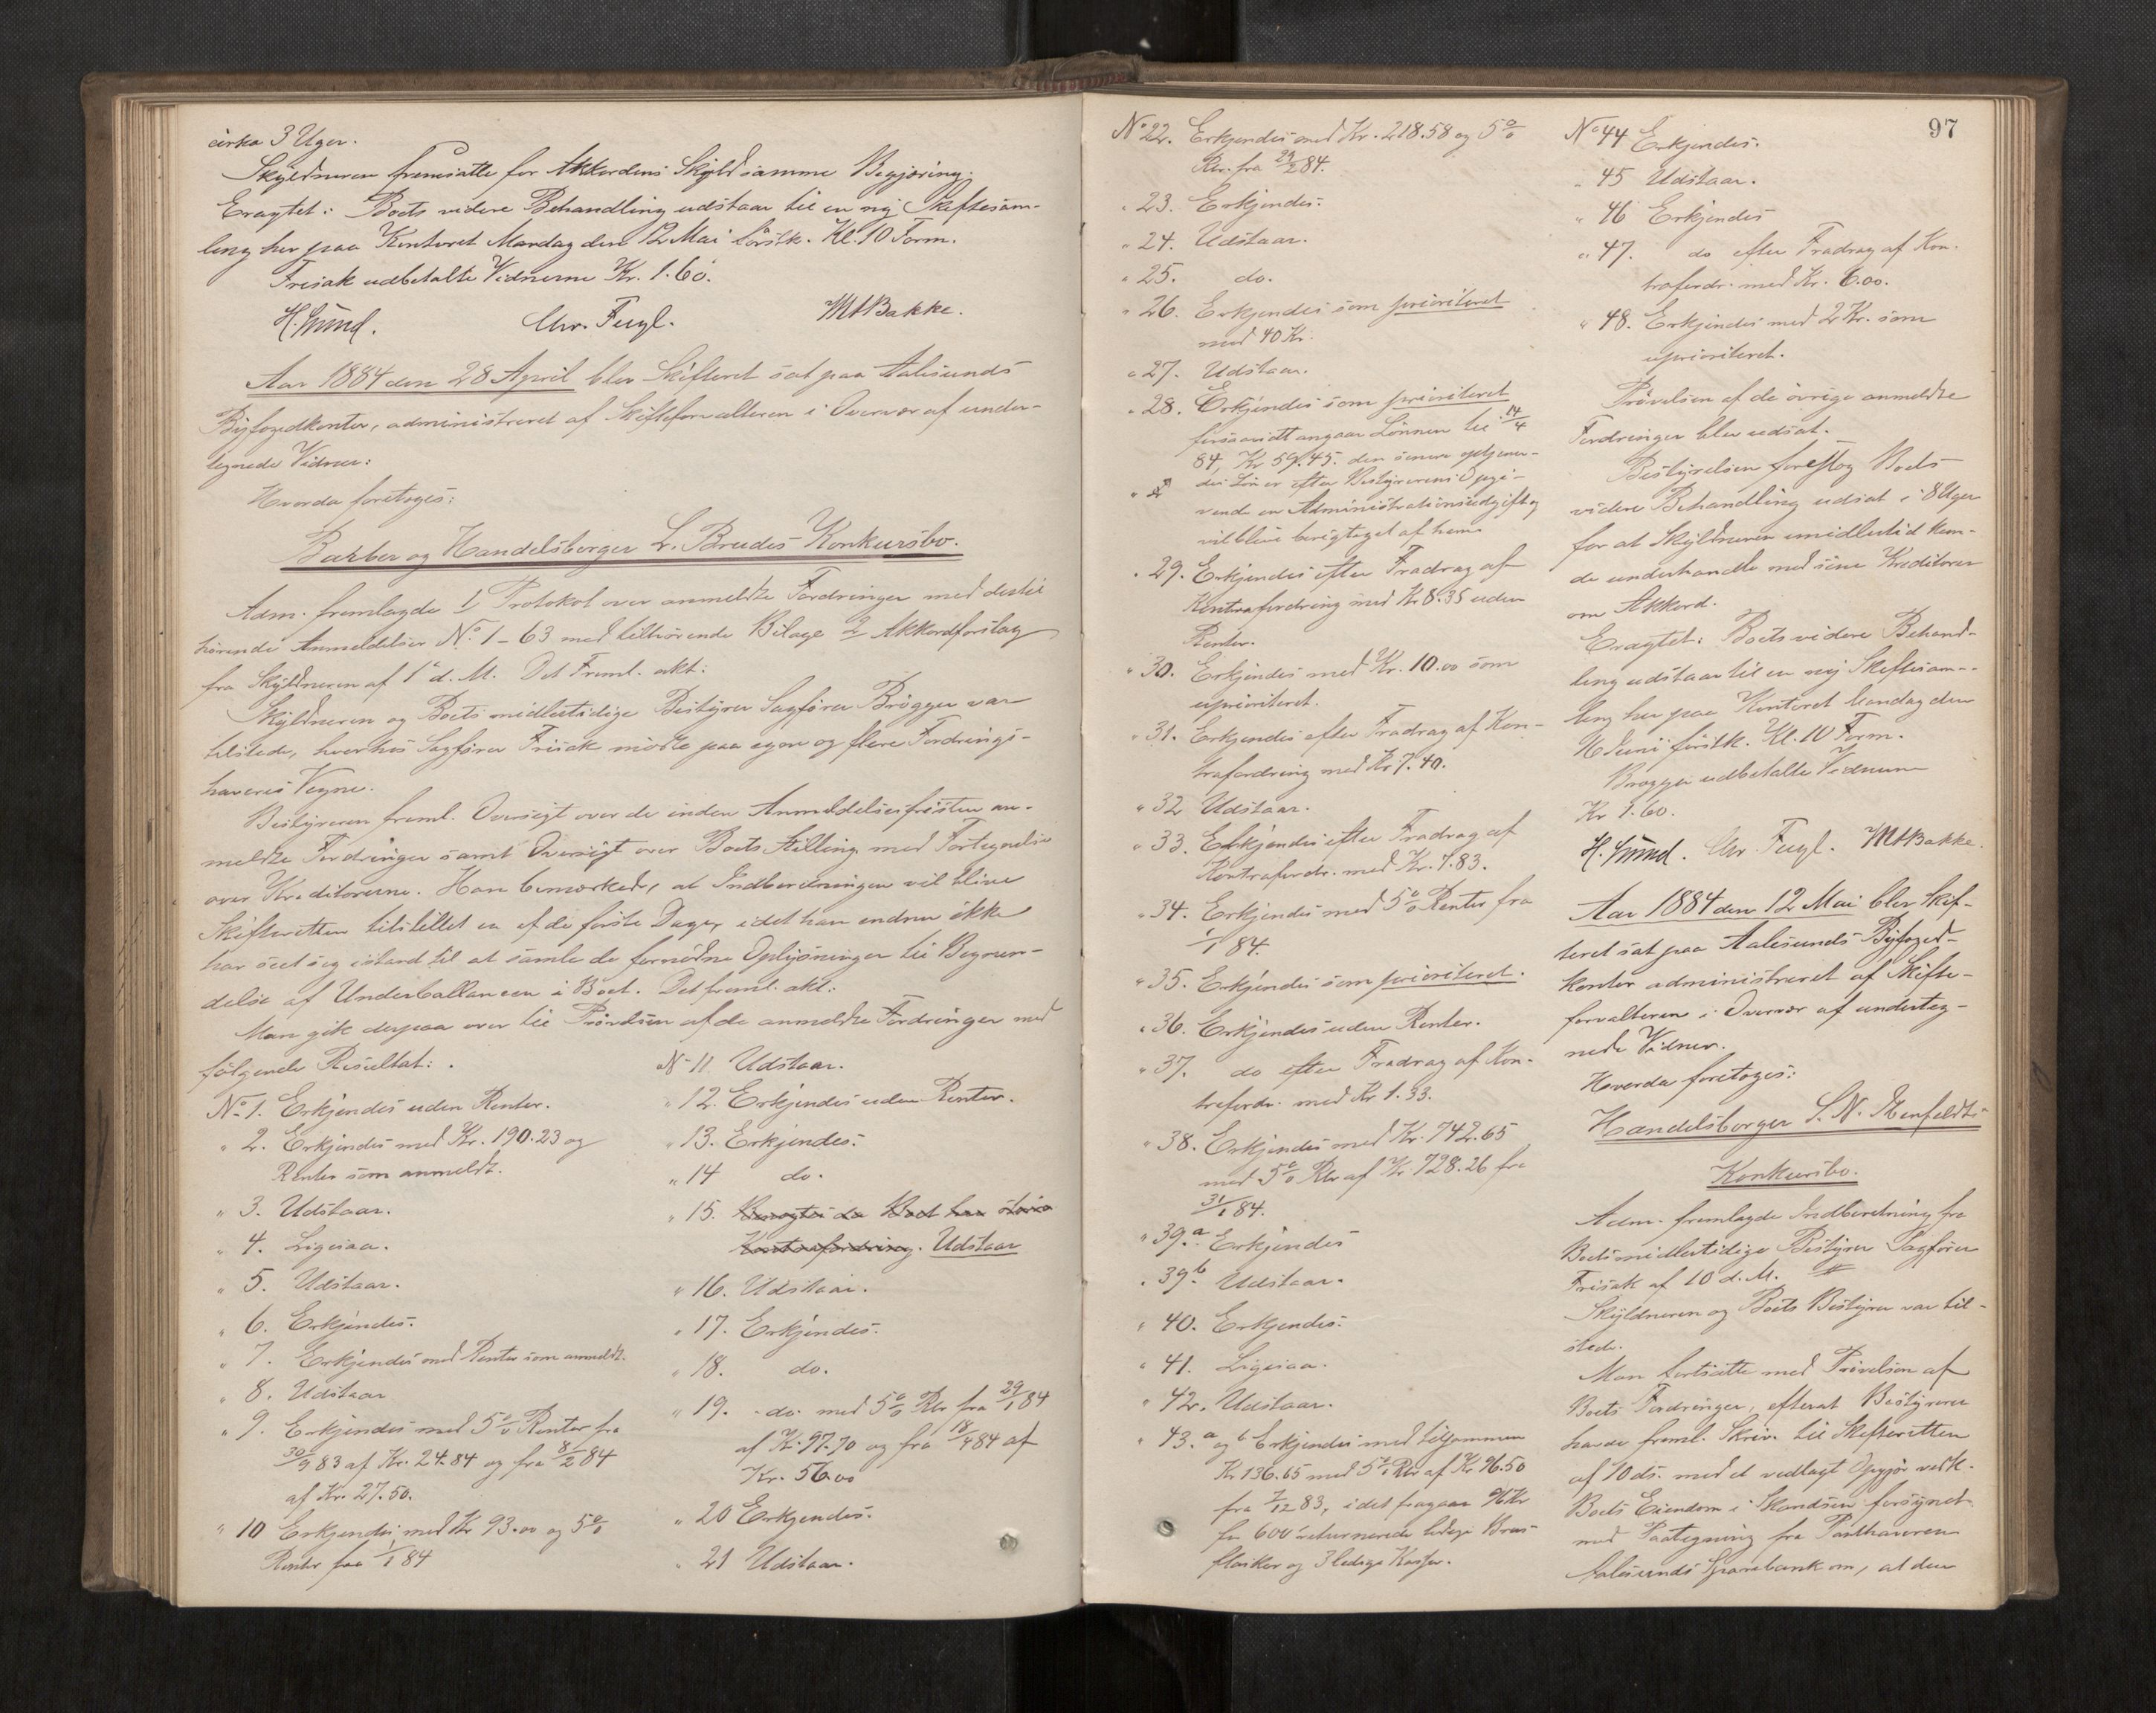 cirka 3 Uger.
Skyldneren fremsatte for Akkordens Skyld samme Begjæring.
Eragtet: Boets videre Behandling udstaar til en ny Skiftesam-
ling her paa Kontoret Mandag den 12 Mai førstk. Kl. 10 Form.
Frisak udbetalte Vidnerne Kr. 1.60.
Chr. Fugl.
M Bakke.
Aar 1884 den 28 April blev Skifteret sat paa Aalesunds
Byfogedkontor, administreret af Skifteforvalteren i Overvær af under-
tegnede Vidner:
Hvorda foretoges:
Barber og Handelsborger L. Brudes Konkursbo.
Adm. fremlagde 1 Protokol over anmeldte Fordringer med dertil
hørende Anmeldelser No. 1-63 med tilhørende Bilage 2 Akkordforslag
fra Skyldneren af 1 d. M. Det Freml. akt:
Skyldneren og Boets midlertidige Bestyrer Sagfører Brøgger var
tilstede, hvorhos Sagfører Frisak mødte paa egne og flere Fordrings-
haveres Vegne.
Bestyreren freml. Oversigt over de inden Anmeldelsesfristen an-
meldte Fordringer samt Oversigt over Boets Stilling med Fortegnelse
over Kreditorerne. Han bemærkede, at Indberetningen vil blive
Skifteretten tilstillet en af de første Dage, idet han endnu ikke
har seet sig istand til at samle de fornødne Oplysninger til Begrun-
delse af Underballancen i Boet. Det freml. akt:
Man gik derpaa over til Prøvelsen af de anmeldte Fordringer med
følgende Resultat:
No 1. Erkjendes uden Renter.
" 2. Erkjendes med Kr. 190.23 og
Renter som anmeldt.
" 3. Udstaar.
" 4. Ligesaa.
" 5. Udstaar.
" 6. Erkjendes.
" 7. Erkjendes med Renter som anmeldt.
" 8. Udstaar
" 9. Erkjendes med 5% Renter fra
30/9 83 af Kr. 24.84 og fra 8/2 84
af Kr. 27.50.
" 10 Erkjendes med Kr 93.00 og 5%
Renter fra 1/1 84
No 11. Udstaar.
" 12. Erkjendes uden Renter.
" 13. Erkjendes.
" 14 do.
" 15. Benægtes da Boet har større
Kontrafordring. Udstaar
" 16. Udstaar.
" 17. Erkjendes.
" 18. do.
" 19. do. med 5% Rtr fra 29/1 84
af Kr. 97.70 og fra 18/4 84 af
Kr. 56.00
" 20 Erkjendes.
" 21 Udstaar.
97
No 22. Erkjendes med Kr. 218.58 og 5%
Rtr. fra 29/2 84.
" 23. Erkjendes.
" 24. Udstaar.
" 25. do.
" 26. Erkjendes som prioriteret
med 40 Kr.
" 27. Udstaar.
" 28. Erkjendes som prioriteret
forsaavidt angaar Lønnen til 14/4
84, Kr 59.45. den senere optjen-
des Løn er efter Bestyrerens Opgi-
vende en Administrationsudgift og
vil blive berigtiget af ham
" 29. Erkjendes efter Fradrag af
Kontrafordring med Kr 8.35 uden
Renter.
" 30. Erkjendes med Kr. 10.00 som
uprioriteret.
" 31. Erkjendes efter Fradrag af Kon-
trafordring med Kr 7.40.
" 32 Udstaar.
" 33. Erkjendes efter Fradrag af
Kontrafordr. med Kr. 7.83.
" 34. Erkjendes med 5% Renter fra
1/1 84.
" 35. Erkjendes som prioriteret.
" 36. Erkjendes uden Renter.
" 37. do efter Fradrag af Kon-
trafordr. med Kr 1.33.
" 38. Erkjendes med Kr. 742.65
med 5% Rtr af Kr 728.26 fra
31/1 84.
" 39.a Erkjendes
" 39b. Udstaar.
" 40. Erkjendes.
" 41. Ligesaa.
" 42. Udstaar.
" 43.a og b Erkjendes med tilsammen
Kr 136.65 med 5% Rtr af Kr 96.50
fra 7/12 83, idet fragaar 96 Kr
for 600 returnerede ledige Brus-
flasker og 3 ledige Kasser.
No 44 Erkjendes.
" 45 Udstaar.
" 46 Erkjendes
" 47. do efter Fradrag af Kon-
trafordr. med Kr. 6.00.
" 48. Erkjendes med 2 Kr. som
uprioriteret.
Prøvelsen af de øvrige anmeldte
Fordringer blev udsat.
Bestyrelsen foreslog Boets
videre Behandling udsat i 8 Uger
for at Skyldneren imidlertid kun-
de underhandle med sine Kreditorer
om Akkord.
Eragtet: Boets videre Behand-
ling udstaar til en ny Skiftesam-
ling her paa Kontoret Mandag den
Juni førstk. Kl. 10 Form.
Brøgger udbetalte Vidnerne
Kr 1.60.
Chr. Fugl. M Bakke.
Aar 1884 den 12 Mai blev Skif-
teret sat paa Aalesunds Byfoged-
kontor administreret af Skifte-
forvalteren i Overvær af underteg-
nede Vidner.
Hvorda foretoges:
Handelsborger S. N.
Konkursbo.
Adm. fremlagde Indberetning fra
Boets midlertidige Bestyrer Sagfører
Frisak af 10 d. M.
Skyldneren og Boets Bestyrer var til-
stede.
Man fortsatte med Prøvelsen af
Boets Fordringer, efterat Bestyreren
havde freml. Skriv. til Skifteretten
af 10 ds. med et vedlagt Opgjør vedk.
Boets Eiendom i Skandsen forsynet
med Paategning fra Panthaveren
Aalesunds Sparebank om, at den